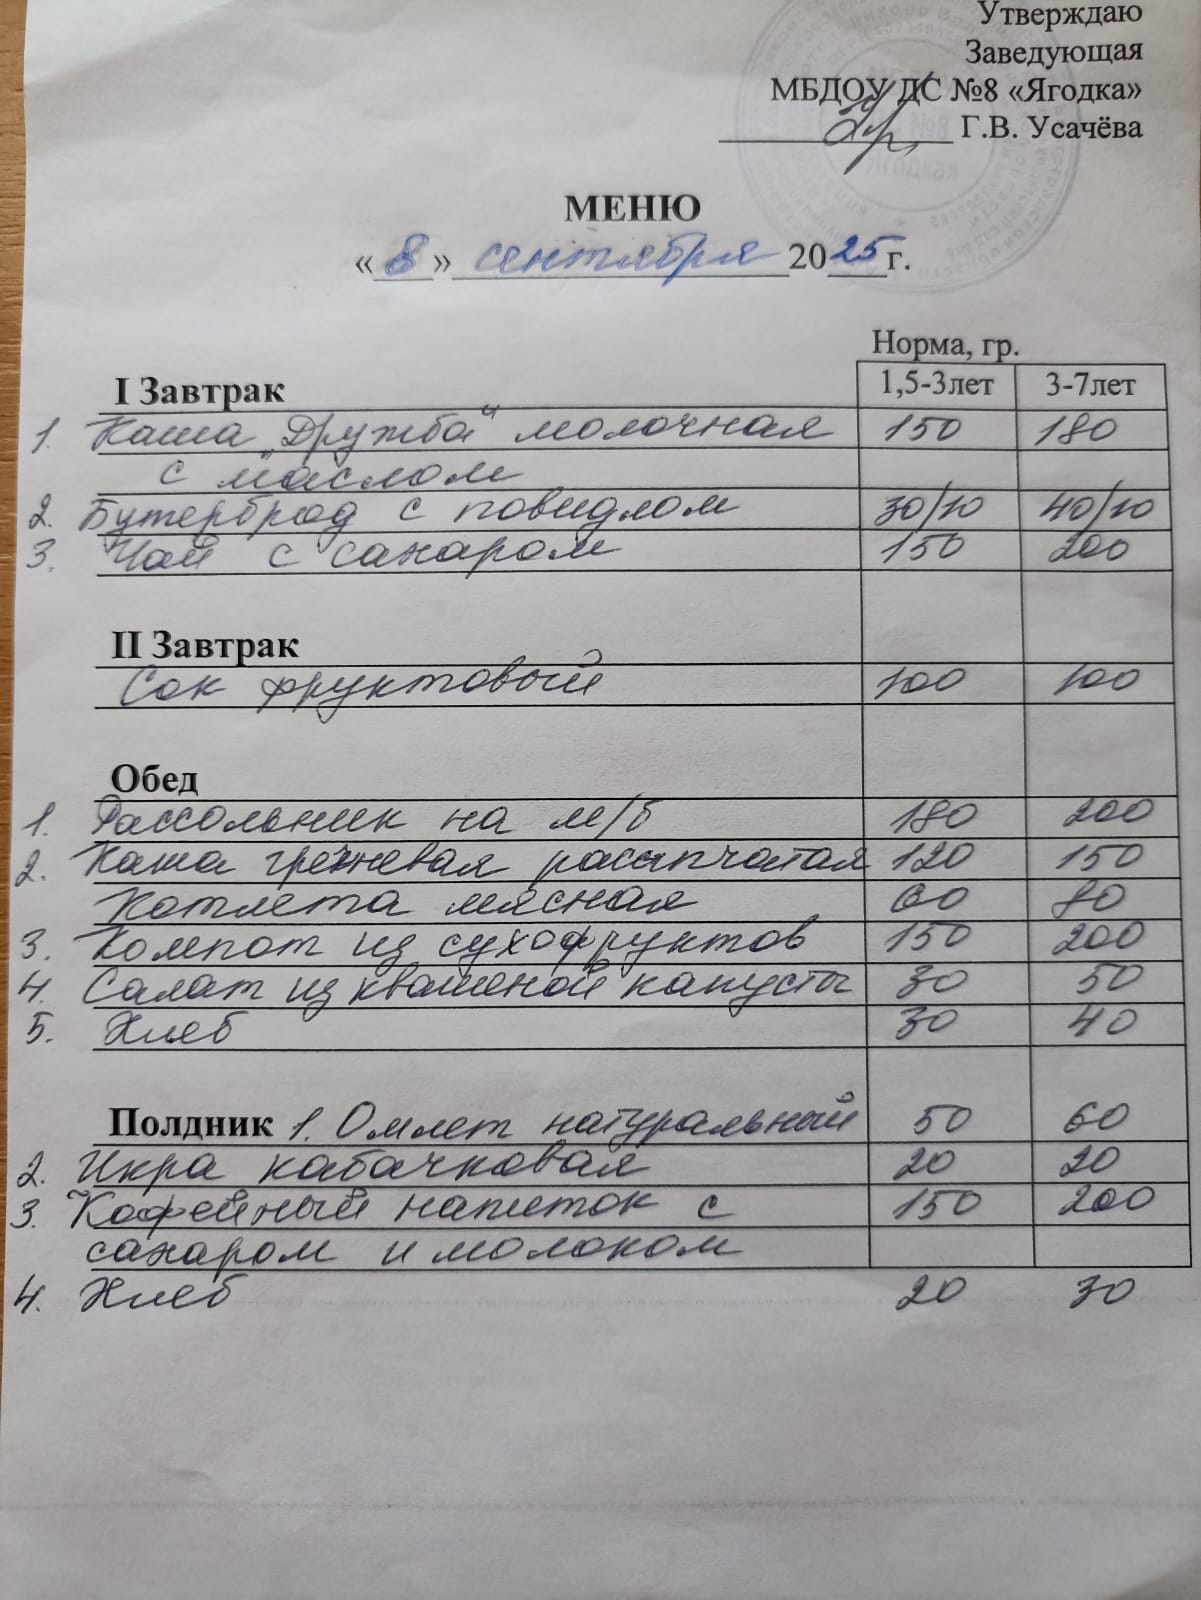 Утверждаю
Заведующая
МБДОУ ДС №8 «Ягодка»
Г.В. Усачёва
МЕНЮ
«8» сентября 2025 г.
Норма, гр.
I Завтрак 1,5-3лет 3-7лет
1. Каша „Дружба" молочная 150 180
с маслом
2. Бутерброд с повидлом 30/10 40/10
3. Чай с сахаром 150 200
II Завтрак
Сок фруктовый 100 100
Обед
1. Рассольник на м/б 180 200
2. Каша гречневая рассыпчатая 120 150
Котлета мясная 60 80
3. Компот из сухофруктов 150 200
4. Салат из квашеной капусты 30 50
5. Хлеб 30 40
Полдник 1. Омлет натуральный 50 60
2. Икра кабачковая 20 20
3. Кофейный напиток с 150 200
сахаром и молоком
4. Хлеб 20 30